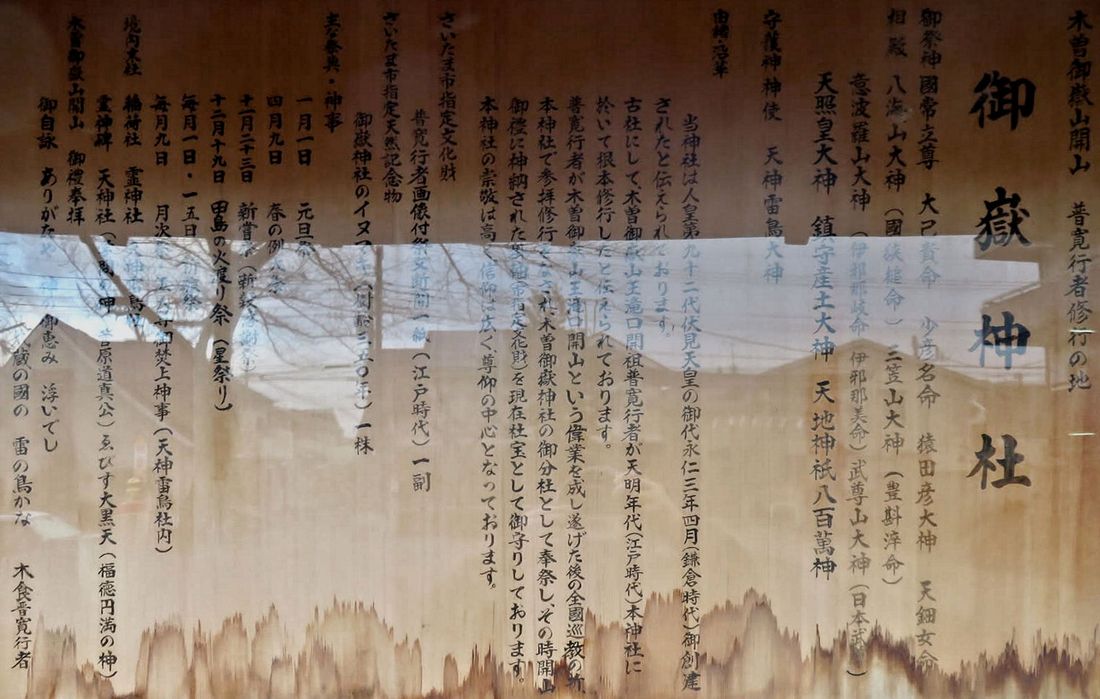 木曽御嶽山開山　普寛行者修行の地
御嶽神社
御祭神 國常立尊　大己貴命　少彦名命　猿田彦大神　天鈿女命
相殿　八海山大神（國狭槌命）三笠山大神（豊斟渟命）
意波羅山大神（伊邪那岐命　伊邪那美命）武尊山大神（日本武尊）
天照皇大神　鎮守産土大神　天地神祇八百萬神
守護神神使　天神雷鳥大神
由緒・沿革
当神社は人皇第九十二代伏見天皇の御代永仁三年四月（鎌倉時代）御創建
されたと伝えられております。
古社にして、木曽御嶽山王滝口開祖普寛行者が天明年代（江戸時代）本神社に
於いて根本修行したと伝えられております。
普寛行者が木曽御嶽山王滝口開山という偉業を成し遂げた後の全國巡教の折、
本神社で参拝修行をなされ、木曽御嶽神社の御分社として奉祭し、その時開山
御禮に神納された（市指定文化財）を現在社宝として御守りしております。
本神社の崇敬は高く信仰は広く、尊仰の中心となっております。
さいたま市指定文化財
普寛行者画像付祭文版
一紙（江戸時代）一副
さいたま市指定天然記念物
御嶽神社のイヌマキ（樹齢三五〇年）一株
主な祭典・神事
一月一日　元旦祭
四月九日　春の例大祭
十一月二十三日　新嘗祭
十二月十九日　田島の火渡り祭（星祭り）
毎月一日・一五日　月次祭
毎月九日　月次祭　御焚上神事（天神雷鳥社内）
境内末社　稲荷社　霊神社
霊神碑　天神社（菅原道真公）ゑびす大黒天（福徳円満の神）
木曽御嶽山開山　御禮奉拝
御自詠　ありがたや　御恵み　浮いでし
武蔵の國の　雷の鳥かな　木食普寛行者